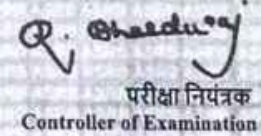 परीक्षा नियंत्रक
Controller of Examination